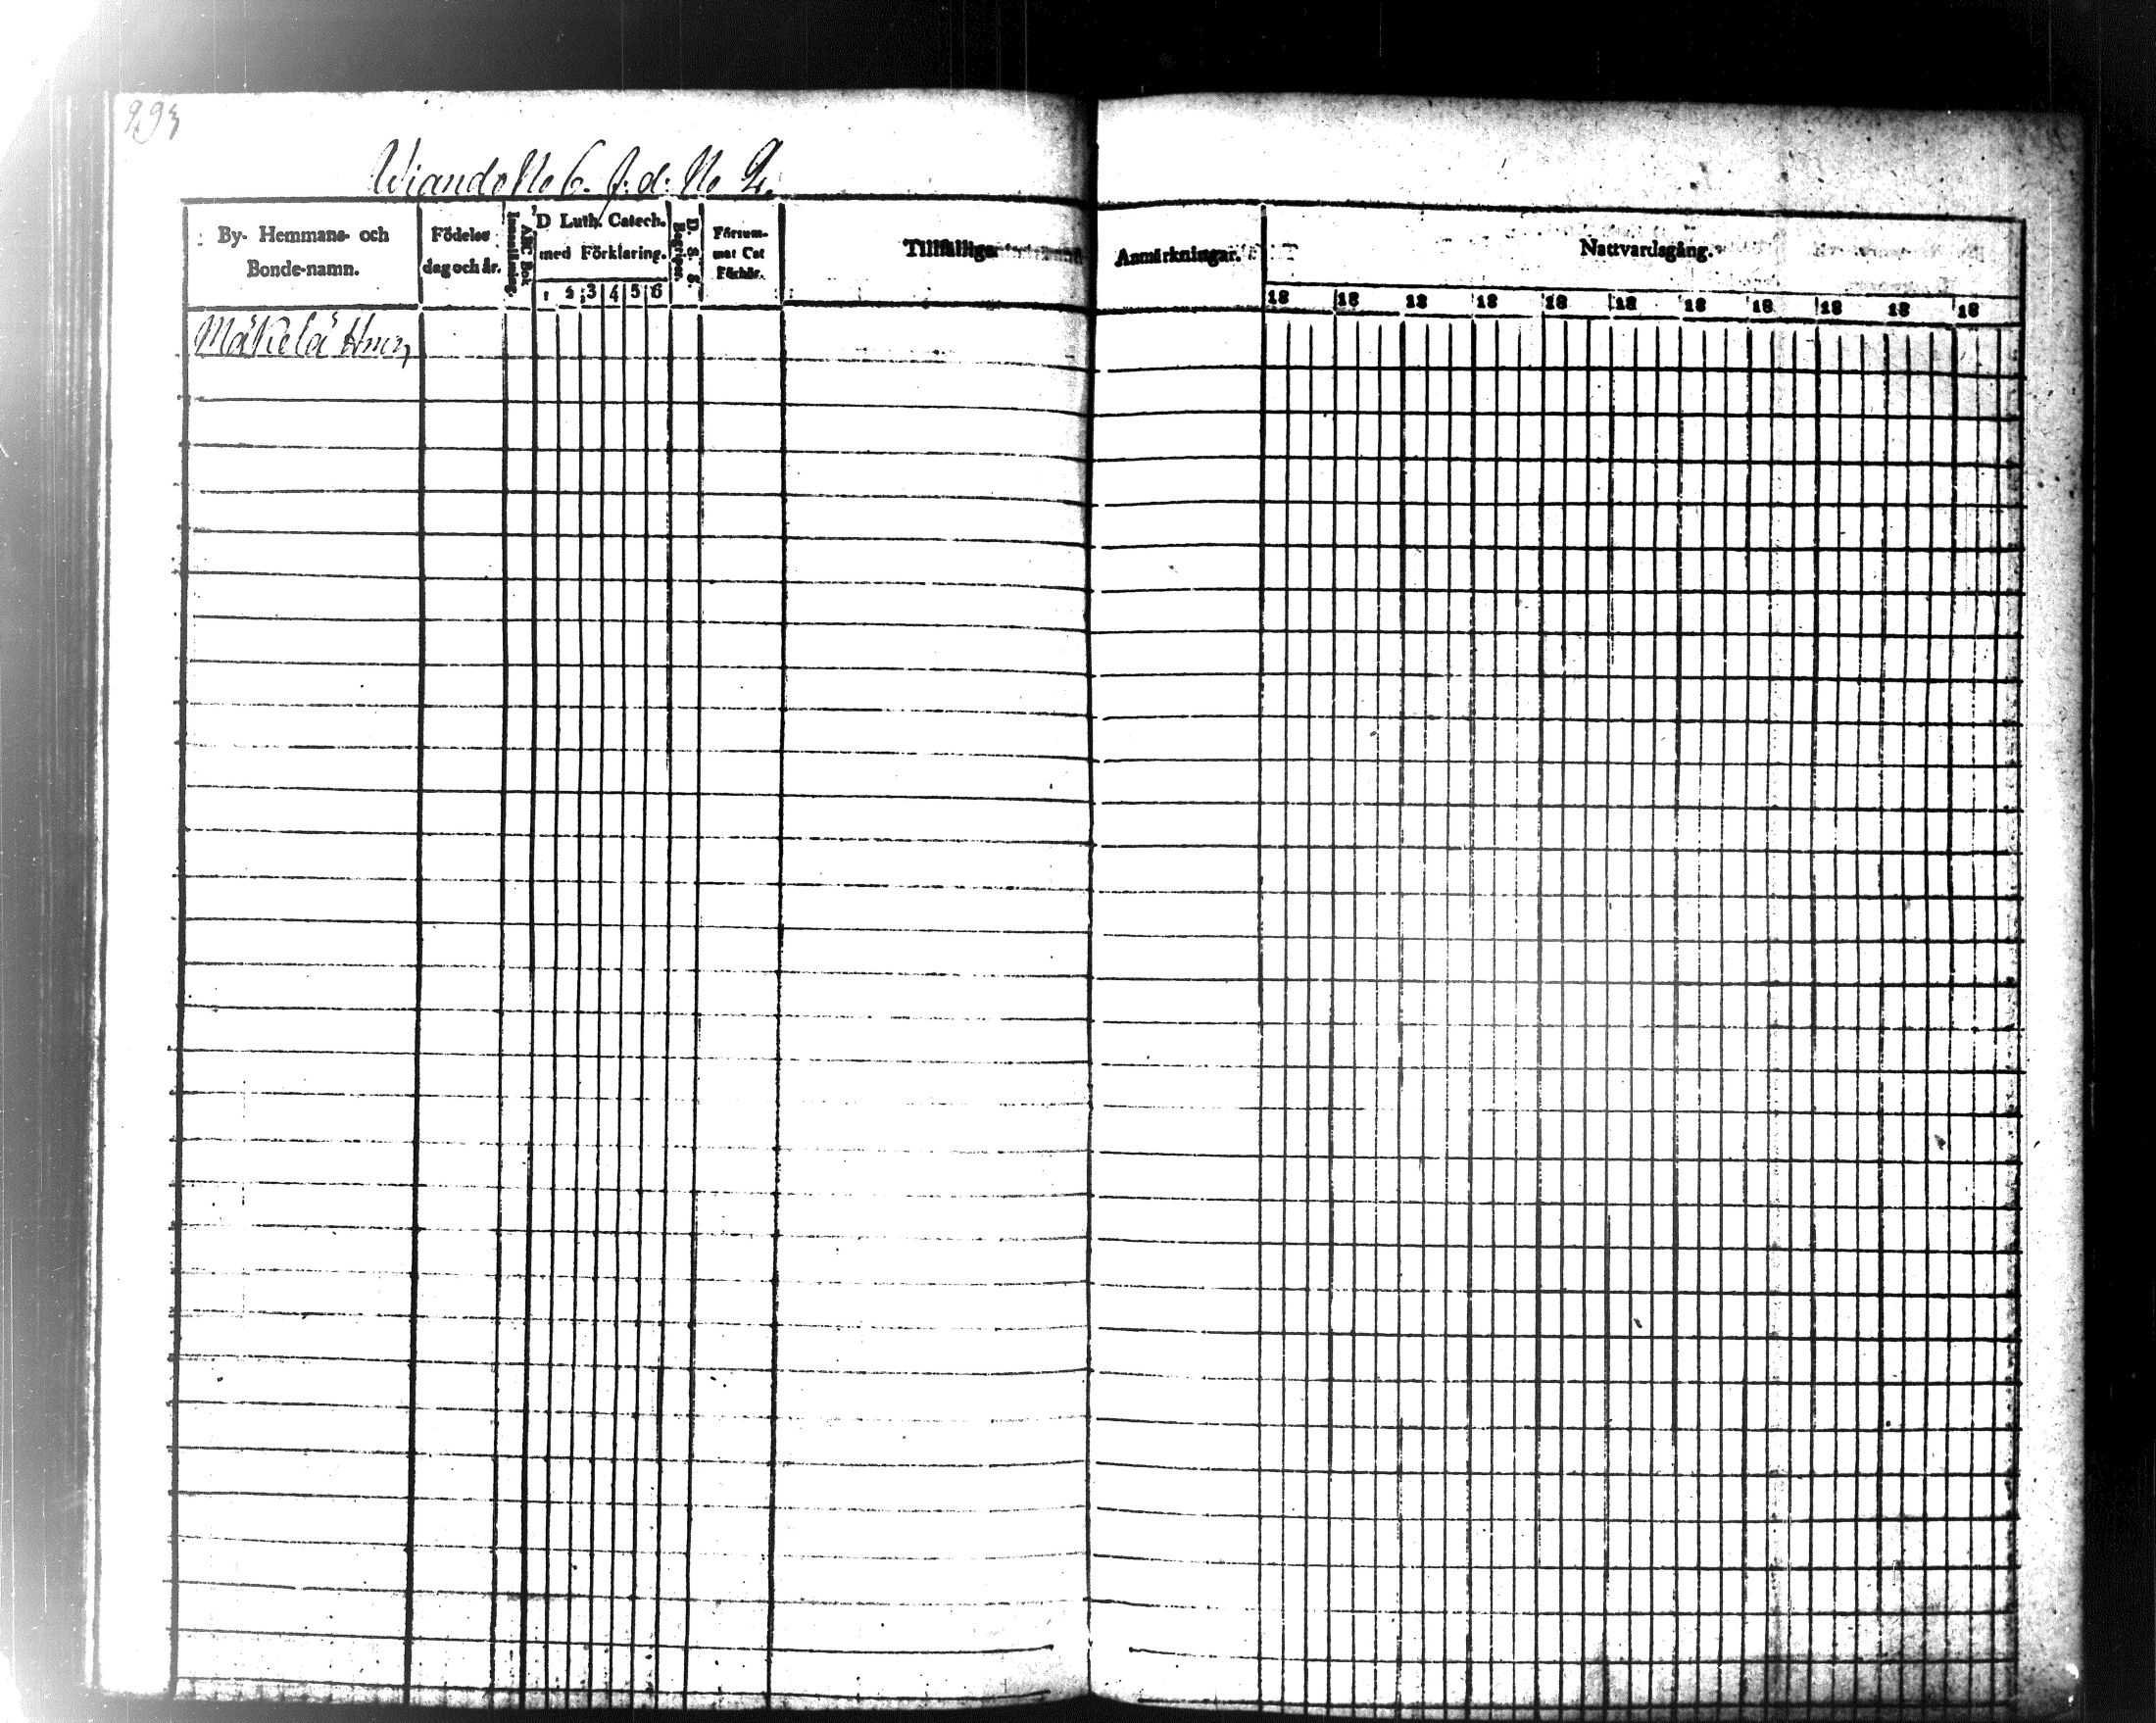 293
Wiando No 6. f. d. No 2.
By- Hemmans- och
Bonde-namn.
Födelse
dag och år.
Innanläsning.
ABC Bok
D Luth. Catech.
med Förklaring.
1 2 3 4 5 6
D. S. S.
Begriper.
Försum-
mat Cat
Förhör.
Tillfällige
Anmärkningar.
Nattvardsgång.
18 18 18 18 18 18 18 18 18 18 18
Mäkelä